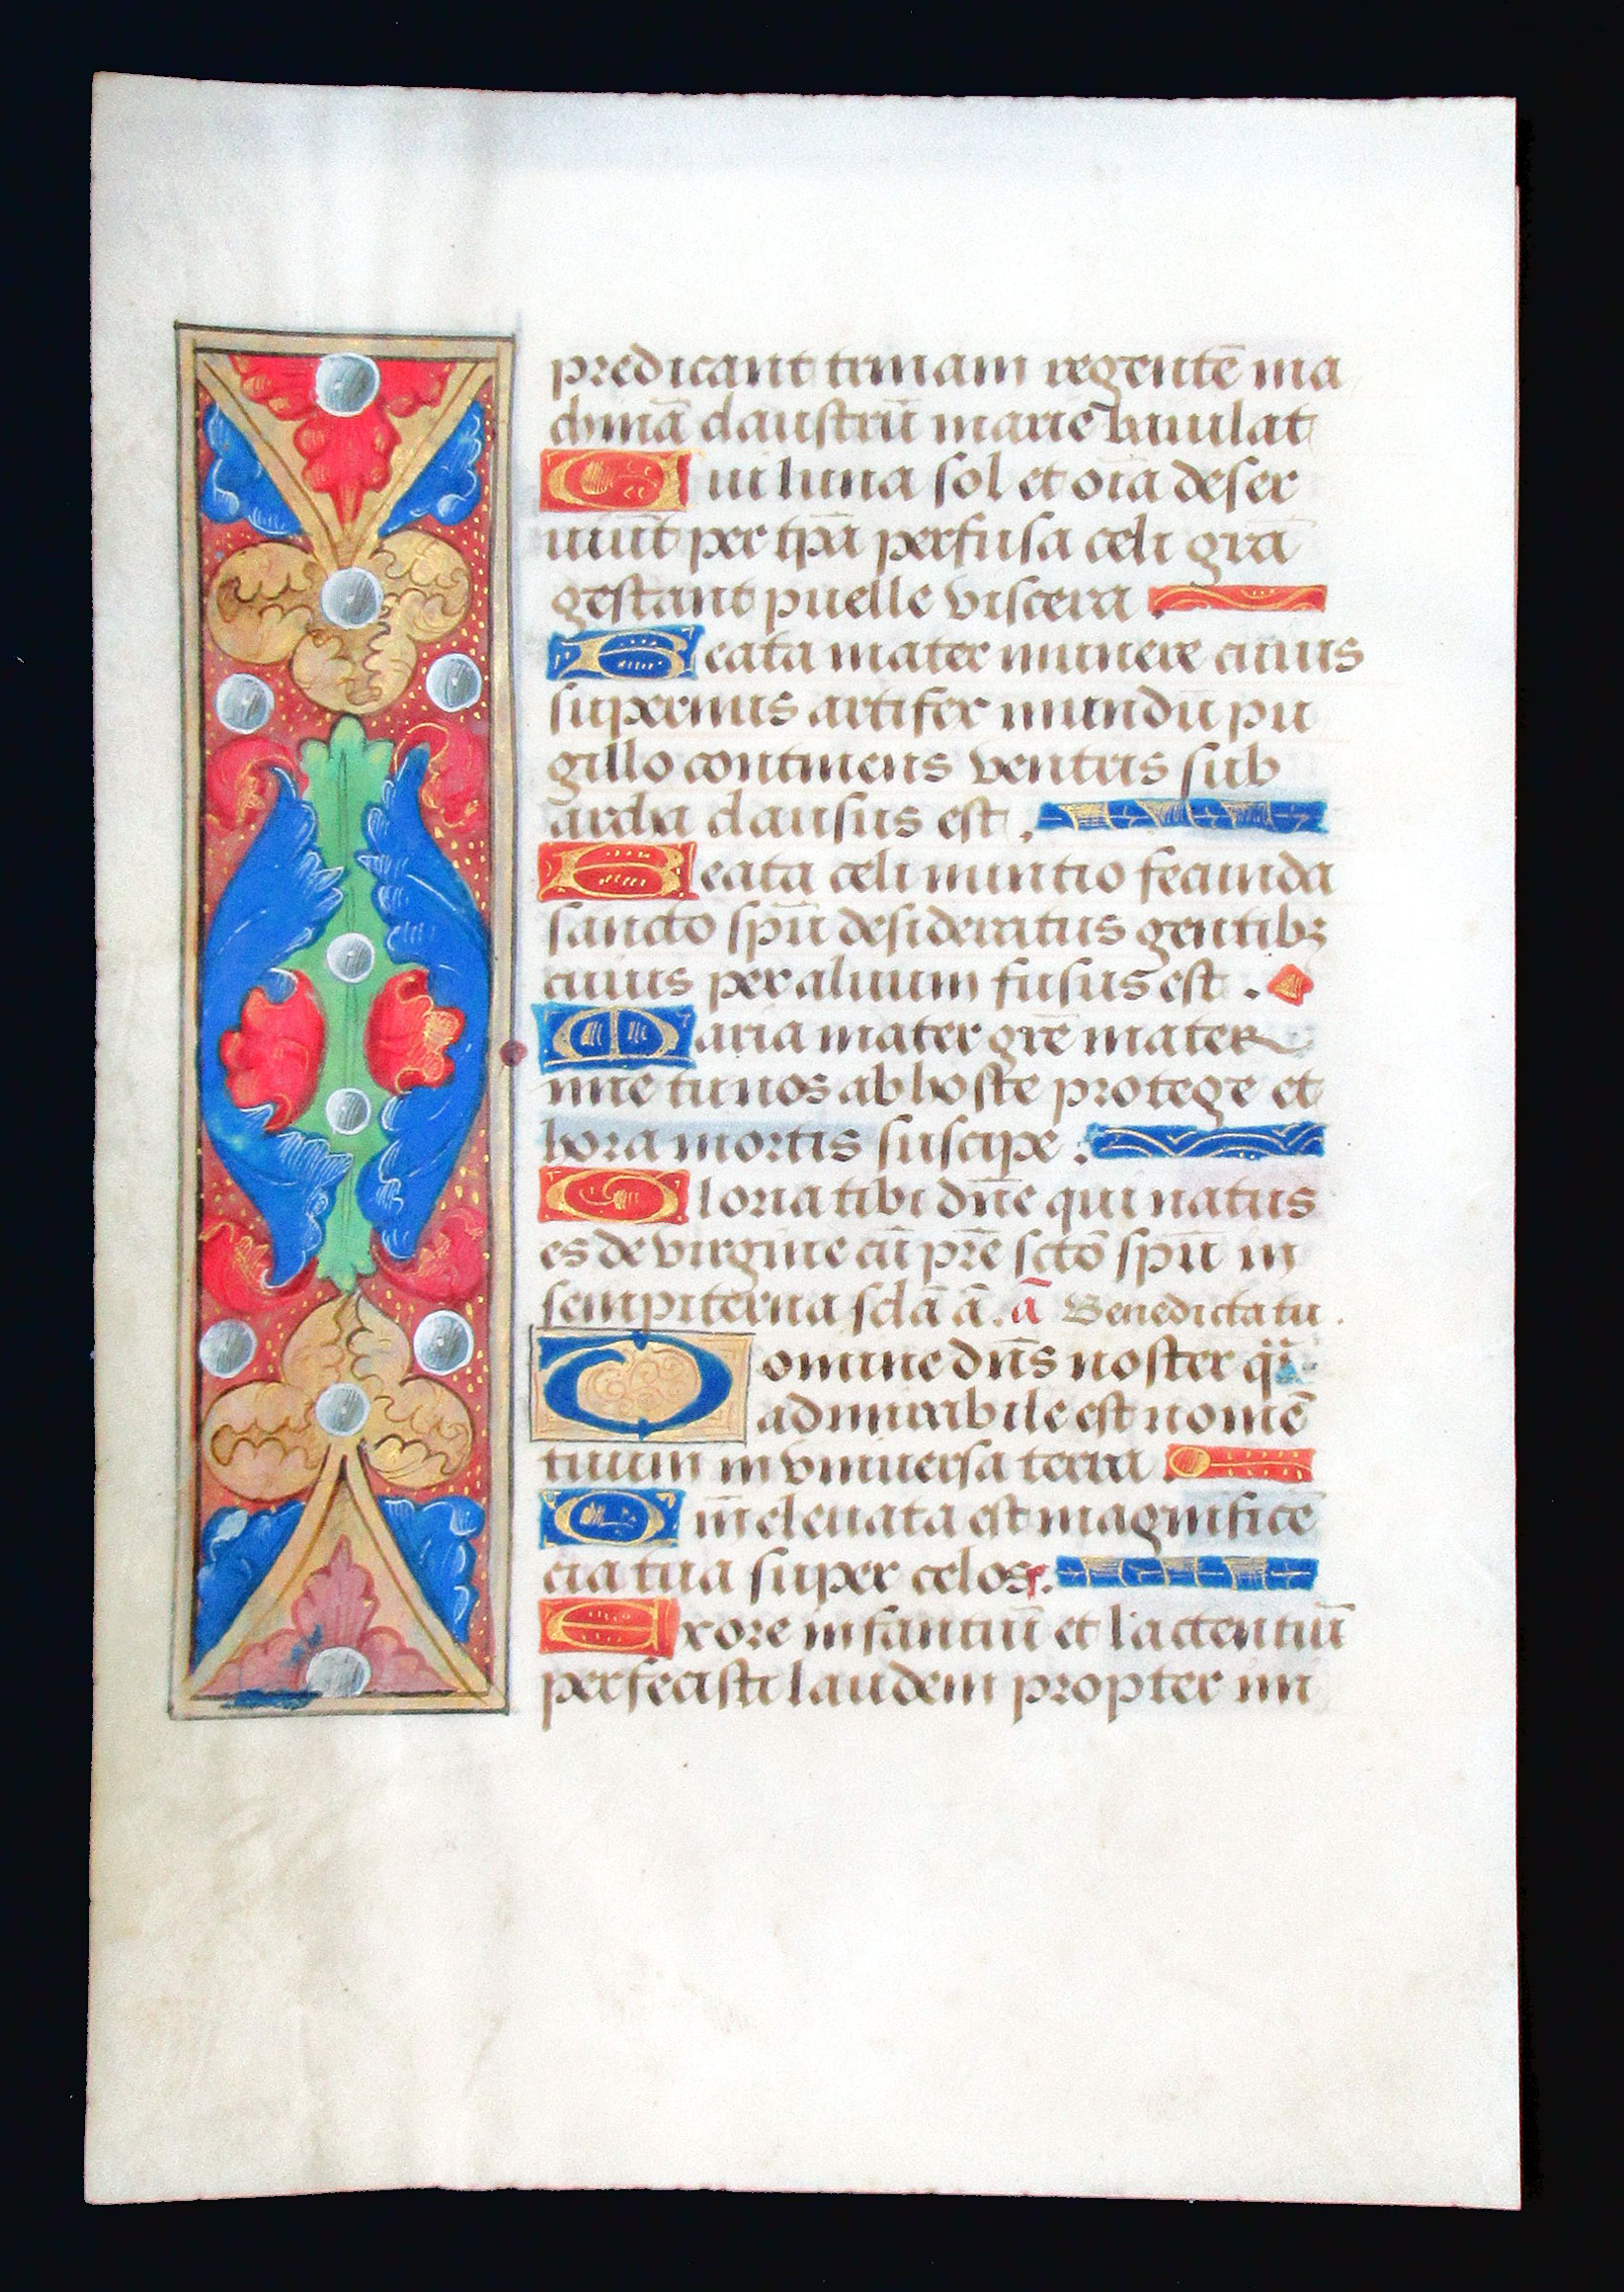 predicant trinam regentē ma
chinā claustrū marie baiulat
Cui luna sol et oīa deser
uiūt per tp̄a perfusa celi grā
gestant puelle viscera .
Beata mater munere cuius
supernus artifex mundū pu
gillo continens ventris sub
archa clausus est .
Beata celi nuntio fecunda
sancto sp̄u desideratus gentibꝫ
cuius per aluum fusus est .
Maria mater grē mater
mie tu nos ab hoste protege et
hora mortis suscipe .
Gloria tibi dn̄e qui natus
es de virgine cū pr̄e sctō sp̄u in
sempiterna sclā ā. ā Benedicta tu .
Domine dn̄s noster q̄
admirabile est nomē
tuum in vniuersa terra .
Qm̄ eleuata est magnificē
cia tua super celos .
Ex ore infantiū et lactentiū
perfecisti laudem propter ini